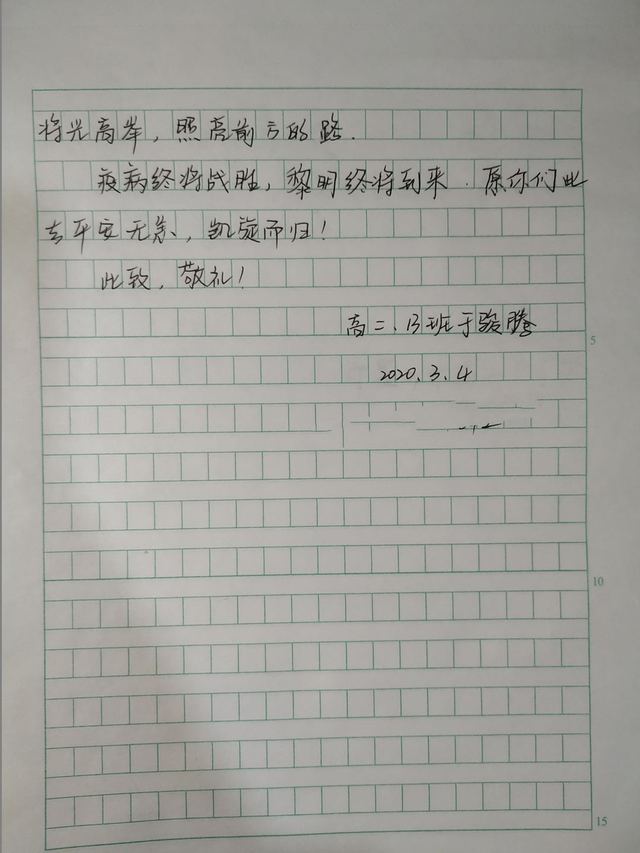 将光高举，照亮前方的路．
疫病终将战胜，黎明终将到来．愿你们此
去平安无恙，凯旋而归！
此致，敬礼！
高二．13班于骏腾
2020.3.4
5
10
15